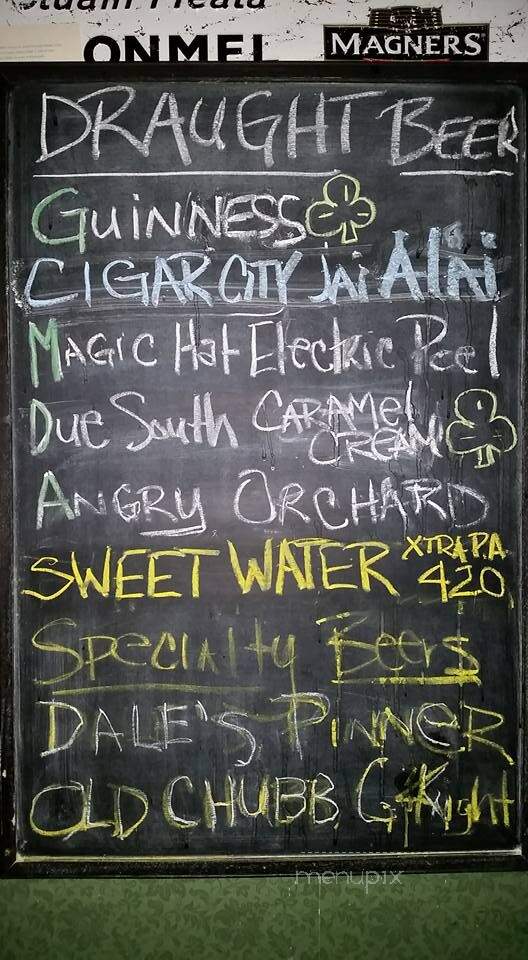 ONMEL
MAGNERS
DRAUGHT BEER
GUINNESS
CIGAR CITY JAi AlAi
MAGIC Hat Electric Peel
Due South CARAMEL
CREAM
ANGRY ORCHARD
SWEET WATER XTRA P.A.
420
Specialty Beers
DALE'S PINNER
OLD CHUBB G'Knight
menupix